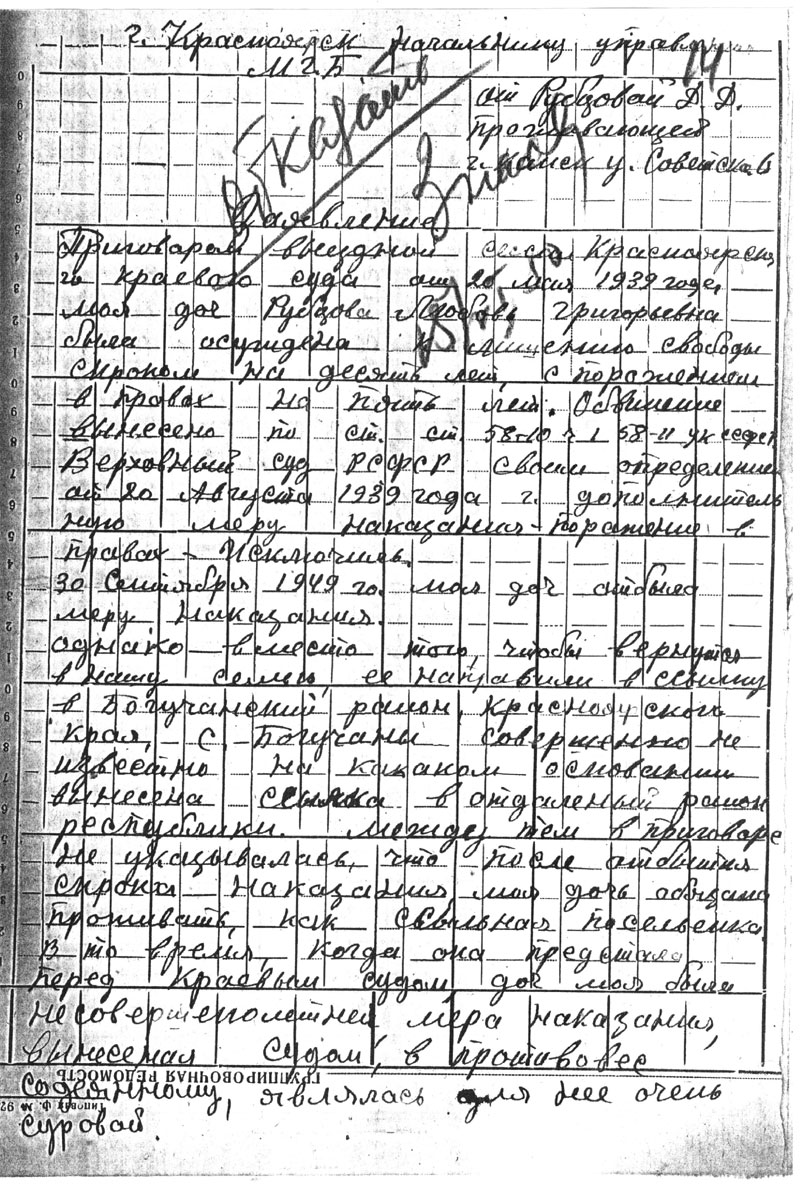 г. Красноярск Начальнику управл
МГБ
14
от Рубцовай Д. Д.
проживающей
г. Канск у. Советская
Отказать
Знаю
Заявление
Приговарам выездной сессии Красноярско
го краевого суда от 20 мая 1939 года,
моя доч Рубцова Любовь Григорьевна
была осуждена к лишению свободы
сроком на десять лет, с поражением
в правах на пять лет. Обвинение
вынесено по ст. ст. 58-10 ч 1 58-11 ук РСФСР
Верховный суд РСФСР своим определением
от 20 Августа 1939 года г. дополнитель
ную меру наказания - поражение в
правах - Исключил.
30 Сентября 1949 го. моя доч отбыла
меру Наказания.
однако вместо того, чтобы вернуться
в нашу семью, ее направили в ссылку
в Богучанский район, Красноярского
края, с. Богучаны совершенно не
известно на какаком основании
вынесена ссылка в отдаленый район
республики. между тем в приговаре
не указывалась, что после отбытия
срока наказания, моя дочь обязана
проживать, как ссыльная поселенка
В то время, когда она предстала
перед Краевым судом, доч моя была
несовершенолетней мера наказания,
вынесеная судом, в противовес
ГРУППИРОВОЧНАЯ ВЕДОМОСТЬ
содеянному, являлась для нее очень
суровай.